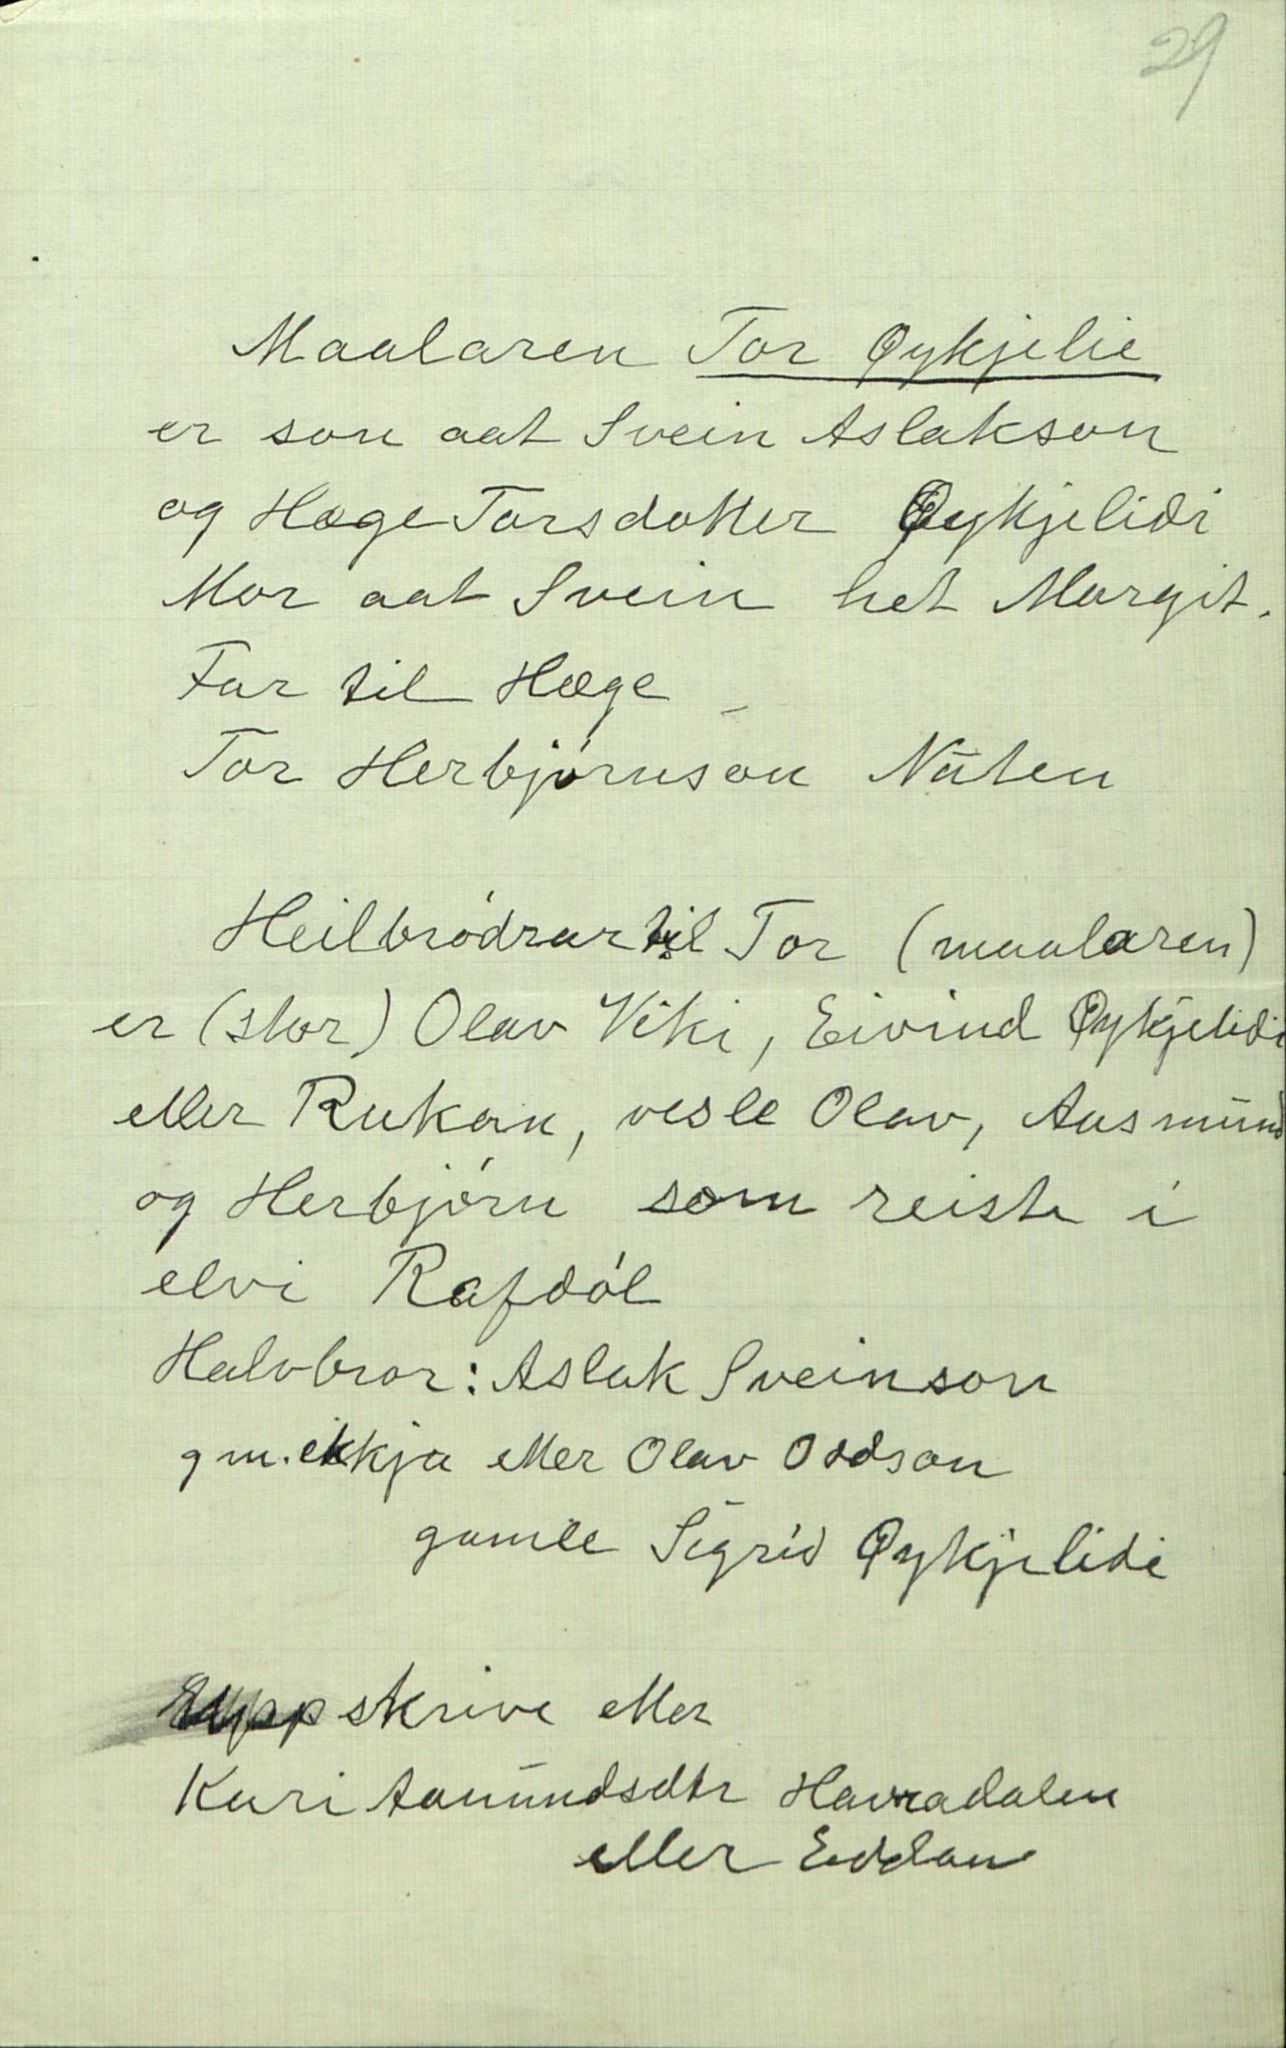 29
Maalaren Tor Øykjelie
er son aat Svein Aslakson
og Hæge Torsdotter Øykjelidi
Mor aat Svein het Margit.
Far til Hæge
Tor Herbjørnson Nuten
Heilbródrar til Tor (maalaren)
er (stor) Olav Viki, Eivind Øykjelidi
eller Rukan, vesle Olav, Aasmund
og Herbjórn som reiste i
elvi Rafdól
Halvbror: Aslak Sveinson
gm. ekkja etter Olav Oddson
gamle Sigrid Øykjelidi
Uppskrive etter
Kari Aamundsdtr Havradalen
eller Eddan